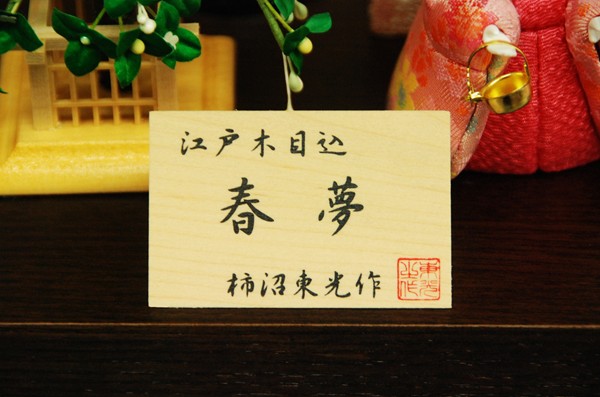 江戸木目込
春夢
柿沼東光作